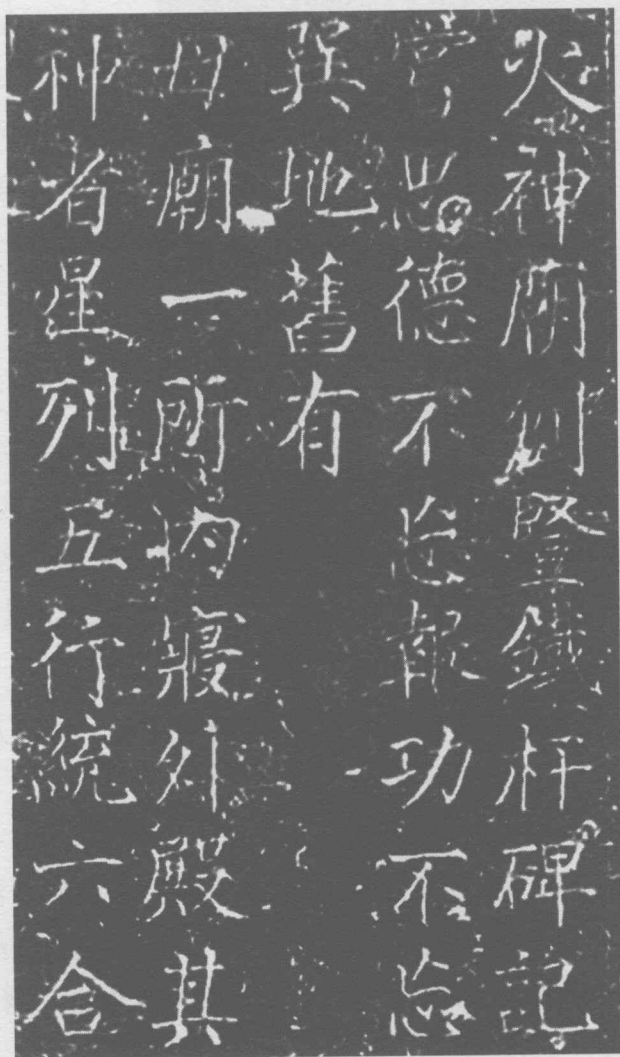 火神廟創竪鐵杆碑記
嘗思德不忘報功不忘
巽地舊有
母廟一所内寢外殿其
神者星列五行統六合